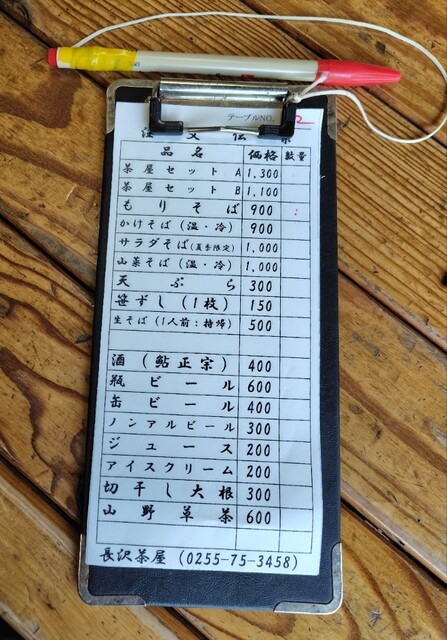 テーブルNO. 2
注文伝票
品名 価格 数量
茶屋セット A 1,300
茶屋セット B 1,100
もりそば 900
かけそば (温・冷) 900
サラダそば(夏季限定) 1,000
山菜そば (温・冷) 1,000
天ぷら 300
笹ずし (1枚) 150
生そば (1人前:持帰) 500
酒 (鮎正宗) 400
瓶ビール 600
缶ビール 400
ノンアルビール 300
ジュース 200
アイスクリーム 200
切干し大根 300
山野草茶 600
長沢茶屋 (0255-75-3458)